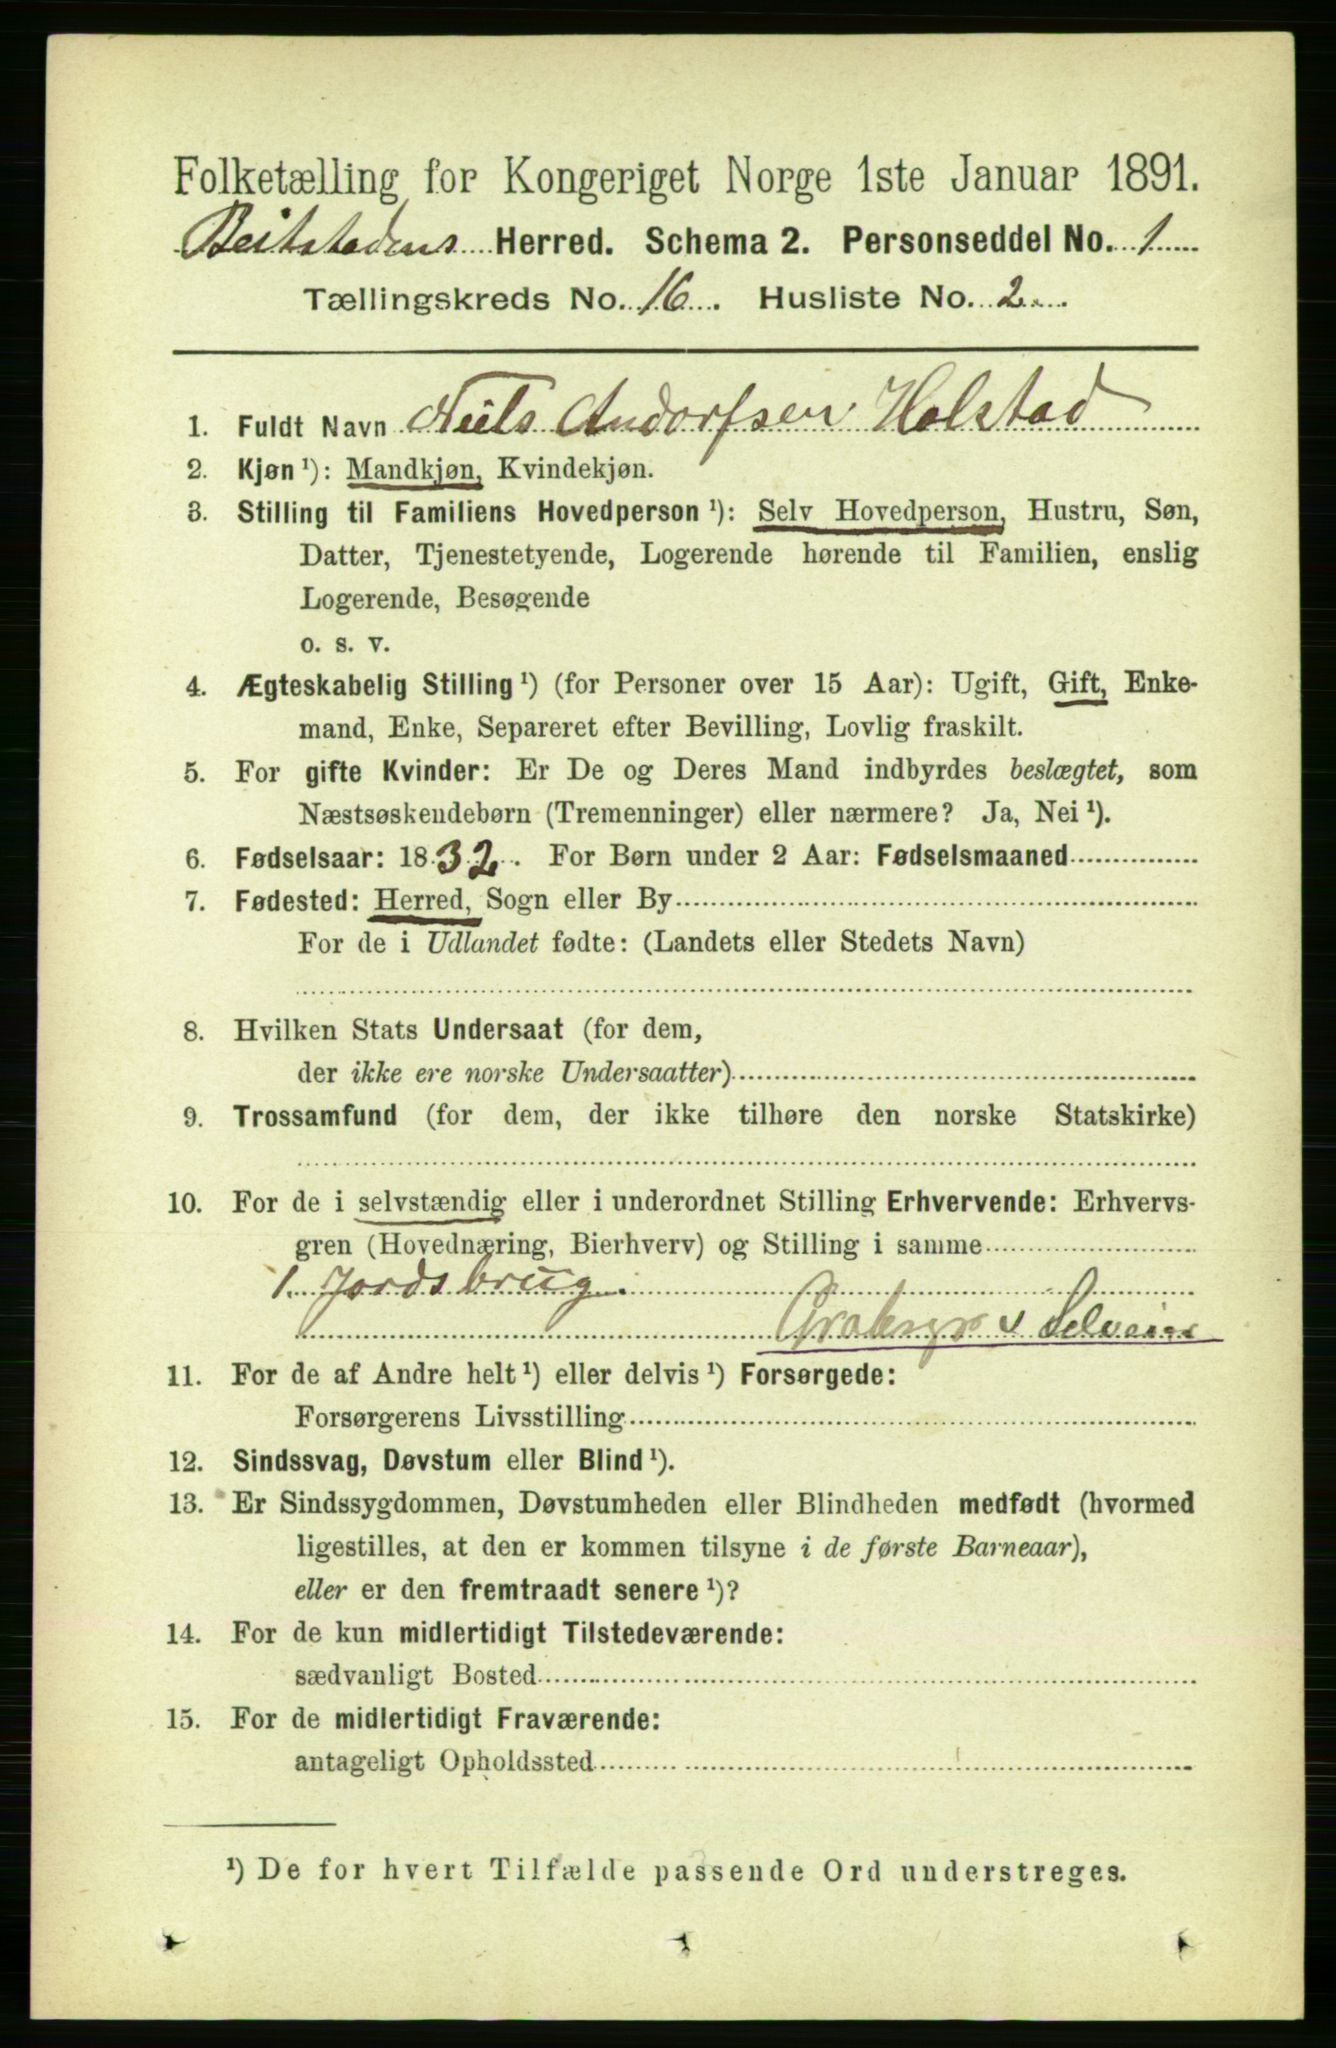 Folketælling for Kongeriget Norge 1ste Januar 1891.
Beitstadens Herred. Schema 2. Personseddel No. 1
Tællingskreds No. 16. Husliste No. 2
1. Fuldt Navn Niels Andorfsen Holstad
2. Kjøn ¹): Mandkjøn, Kvindekjøn.
3. Stilling til Familiens Hovedperson ¹): Selv Hovedperson, Hustru, Søn,
Datter, Tjenestetyende, Logerende hørende til Familien, enslig
Logerende, Besøgende
o. s. v.
4. Ægteskabelig Stilling ¹) (for Personer over 15 Aar): Ugift, Gift, Enke-
mand, Enke, Separeret efter Bevilling, Lovlig fraskilt.
5. For gifte Kvinder: Er De og Deres Mand indbyrdes beslægtet, som
Næstsøskendebørn (Tremenninger) eller nærmere? Ja, Nei ¹).
6. Fødselsaar: 1832. For Børn under 2 Aar: Fødselsmaaned
7. Fødested: Herred, Sogn eller By
For de i Udlandet fødte: (Landets eller Stedets Navn)
8. Hvilken Stats Undersaat (for dem,
der ikke ere norske Undersaatter)
9. Trossamfund (for dem, der ikke tilhøre den norske Statskirke)
10. For de i selvstændig eller i underordnet Stilling Erhvervende: Erhvervs-
gren (Hovednæring, Bierhverv) og Stilling i samme
1. Jordsbrug.
Selveier
11. For de af Andre helt ¹) eller delvis ¹) Forsørgede:
Forsørgerens Livsstilling
12. Sindssvag, Døvstum eller Blind ¹).
13. Er Sindssygdommen, Døvstumheden eller Blindheden medfødt (hvormed
ligestilles, at den er kommen tilsyne i de første Barneaar),
eller er den fremtraadt senere ¹)?
14. For de kun midlertidigt Tilstedeværende:
sædvanligt Bosted
15. For de midlertidigt Fraværende:
antageligt Opholdssted
¹) De for hvert Tilfælde passende Ord understreges.